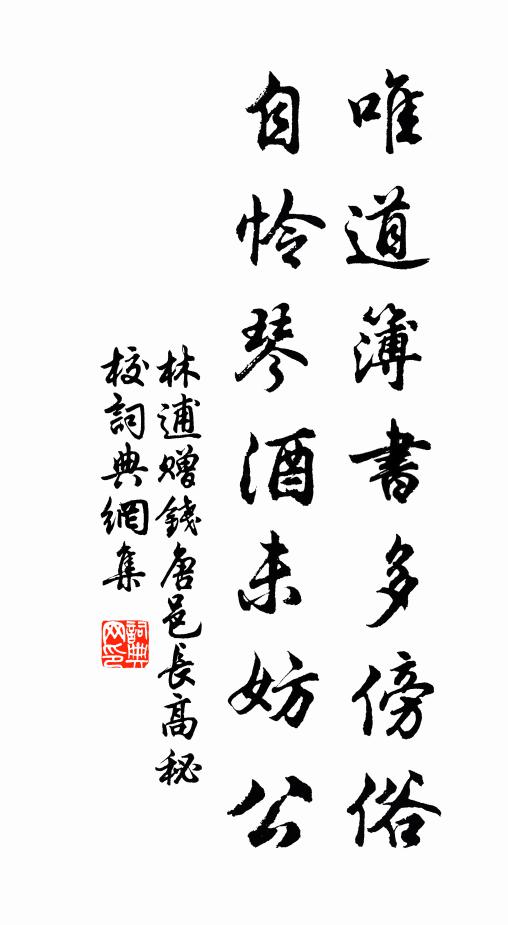 唯道簿書多傍俗
自怜琴酒未妨公
林逋贈錢唐邑長高秘
校詞典網集
詞典
网印